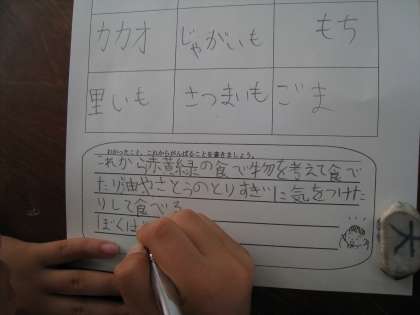 カカオ じゃがいも もち
里いも さつまいも ごま
わかったこと、これからがんばることを書きましょう。
これから赤黄緑の食べ物を考えて食べ
たり油やさとうのとりすぎに気をつけた
りして食べる
ぼくは
大